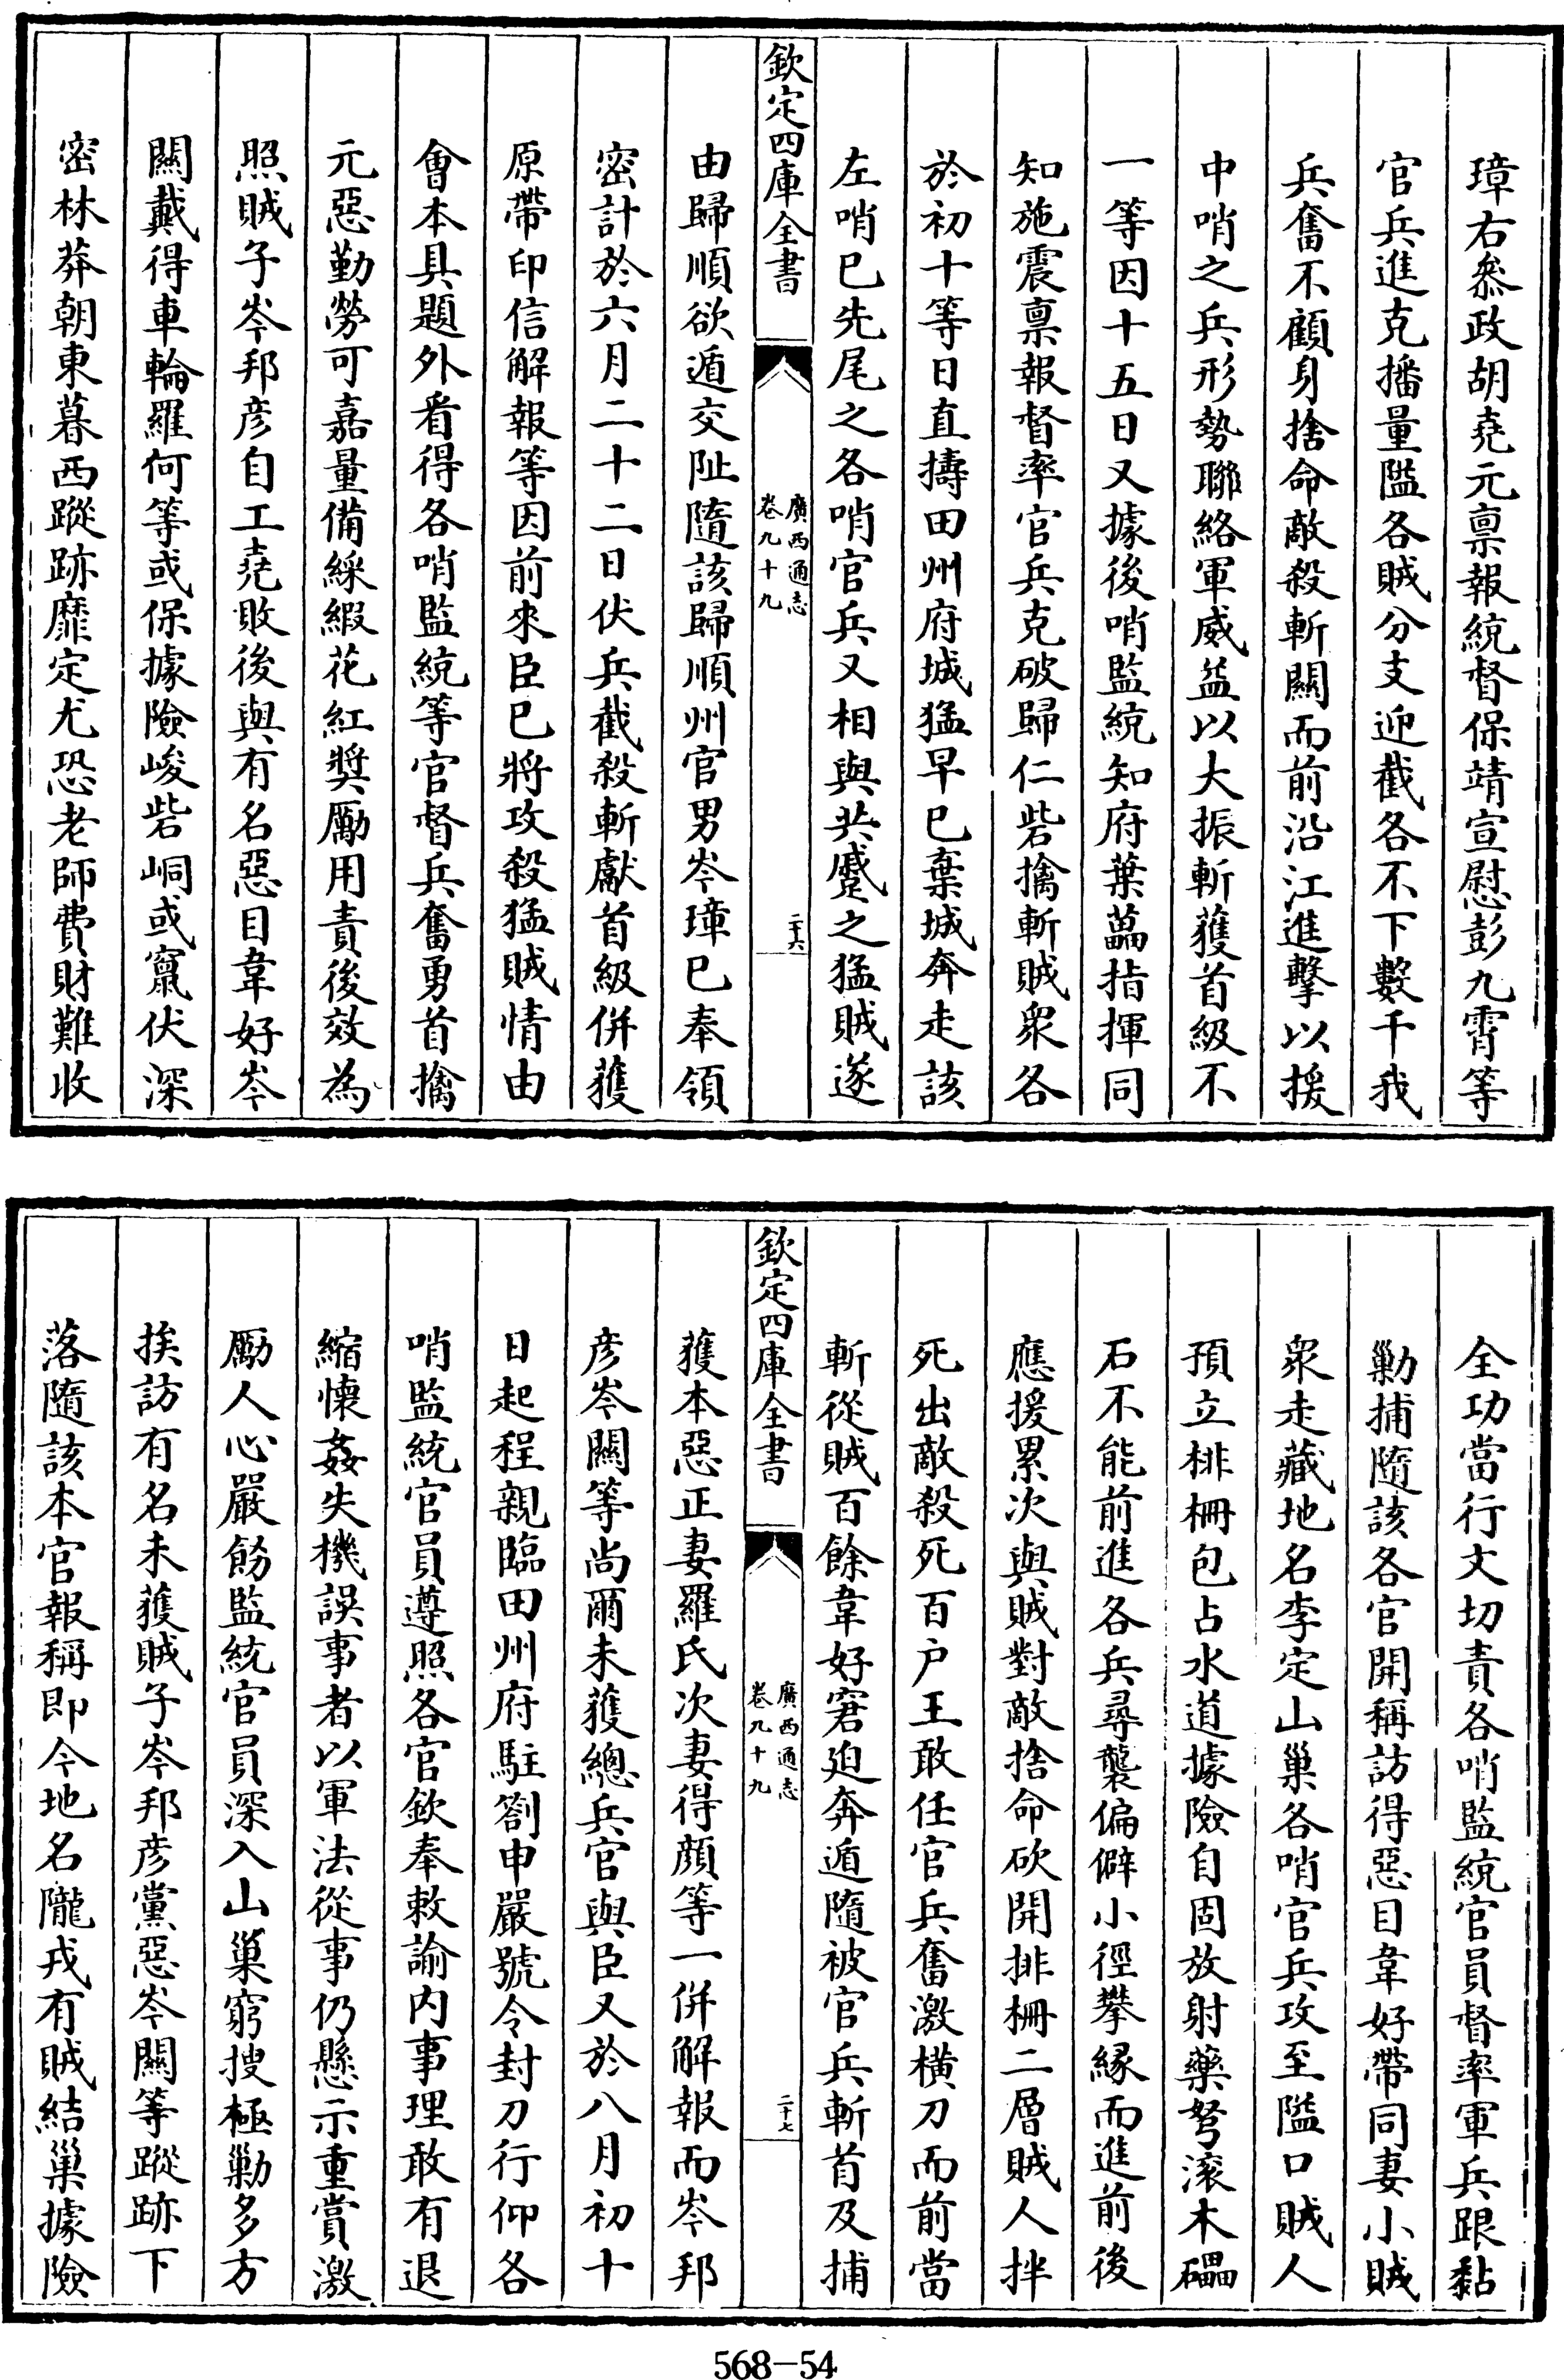 璋右叅政胡堯元禀報統督保靖宣慰彭九霄等
官兵進克播量隘各賊分支迎截各不下數千我
兵奮不顧身捨命敵殺斬關而前沿江進擊以援
中哨之兵形勢聯絡軍威益以大振斬獲首級不
一等因十五日又據後哨監統知府葉藟指揮同
知施震禀報督率官兵克破歸仁砦擒斬賊衆各
於初十等日直擣田州府城猛早已棄城奔走該
左哨已先尾之各哨官兵又相與共蹙之猛賊遂
欽定四庫全書
廣西通志
卷九十九
二十六
由歸順欲遁交阯隨該歸順州官男岑璋已奉領
密計於六月二十二日伏兵截殺斬獻首級併獲
原帶印信解報等因前來臣已將攻殺猛賊情由
會本具題外看得各哨監統等官督兵奮勇首擒
元惡勤勞可嘉量備綵緞花紅獎勵用責後效為
照賊子岑邦彦自工堯敗後與有名惡目韋好岑
關戴得車輪羅何等或保據險峻砦峒或竄伏深
密林莽朝東暮西蹤跡靡定尤恐老師費財難收
全功當行文切責各哨監統官員督率軍兵跟黏
勦捕隨該各官開稱訪得惡目韋好帶同妻小賊
衆走藏地名李定山巢各哨官兵攻至隘口賊人
預立排柵包占水道據險自固放射藥弩滚木礧
石不能前進各兵尋襲偏僻小徑攀縁而進前後
應援累次與賊對敵捨命砍開排柵二層賊人拌
死出敵殺死百户王敢任官兵奮激横刀而前當
斬從賊百餘韋好窘廹奔遁隨被官兵斬首及捕
欽定四庫全書
廣西通志
卷九十九
二十七
獲本惡正妻羅氏次妻得顔等一併解報而岑邦
彦岑關等尚爾未獲總兵官與臣又於八月初十
日起程親臨田州府駐劄申嚴號令封刀行仰各
哨監統官員遵照各官欽奉敕諭内事理敢有退
縮懷姦失機誤事者以軍法從事仍懸示重賞激
勵人心嚴飭監統官員深入山巢窮搜極勦多方
挨訪有名未獲賊子岑邦彦黨惡岑關等蹤跡下
落隨該本官報稱即今地名隴戎有賊結巢據險
568-54